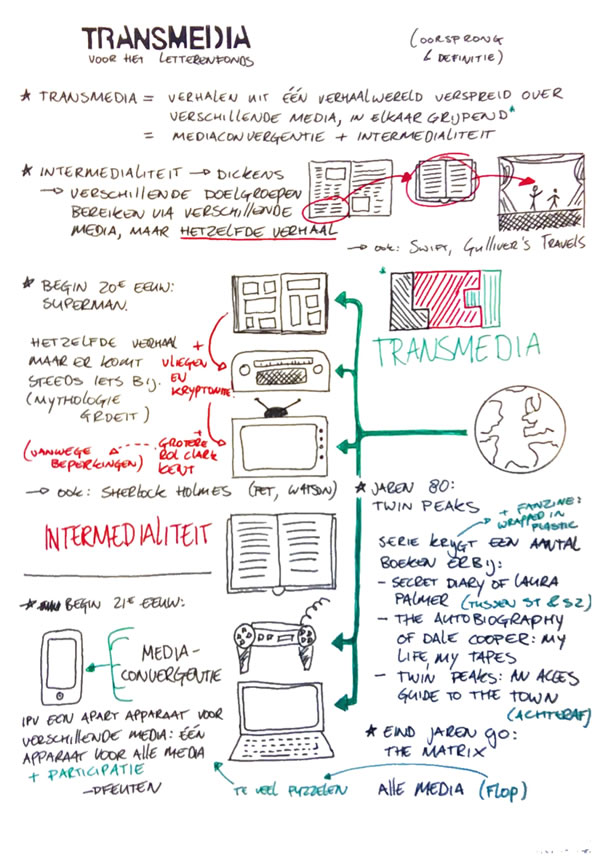 TRANSMEDIA
VOOR HET LETTERENFONDS
(OORSPRONG
& DEFINITIE)
* TRANSMEDIA = VERHALEN UIT ÉÉN VERHAALWERELD VERSPREID OVER
VERSCHILLENDE MEDIA, IN ELKAAR GRIJPEND*
= MEDIACONVERGENTIE + INTERMEDIALITEIT
* INTERMEDIALITEIT → DICKENS
→ VERSCHILLENDE DOELGROEPEN
BEREIKEN VIA VERSCHILLENDE
MEDIA, MAAR HETZELFDE VERHAAL
→ OOK: SWIFT, GULLIVER'S TRAVELS
* BEGIN 20E EEUW:
SUPERMAN.
HETZELFDE VERHAAL
MAAR ER KOMT
STEEDS IETS BIJ.
(MYTHOLOGIE
GROEIT)
+
VLIEGEN
EN
KRYPTONITE.
+
GROTERE
ROL CLARK
KENT
(VANWEGE
BEPERKINGEN)
→ OOK: SHERLOCK HOLMES (PET, WATSON)
*
TRANSMEDIA
INTERMEDIALITEIT
* JAREN 80:
TWIN PEAKS
+ FANZINE:
WRAPPED IN
PLASTIC
SERIE KRIJGT EEN AANTAL
BOEKEN ERBIJ:
- SECRET DIARY OF LAURA
PALMER (TUSSEN S1 & S2)
- THE AUTOBIOGRAPHY
OF DALE COOPER: MY
LIFE, MY TAPES
- TWIN PEAKS: AN ACCES
GUIDE TO THE TOWN
(ACHTERAF)
* BEGIN 21E EEUW:
MEDIA-
CONVERGENTIE
IPV EEN APART APPARAAT VOOR
VERSCHILLENDE MEDIA: ÉÉN
APPARAAT VOOR ALLE MEDIA
+ PARTICIPATIE
* EIND JAREN 90:
THE MATRIX
ALLE MEDIA (FLOP)
TE VEEL PUZZELEN